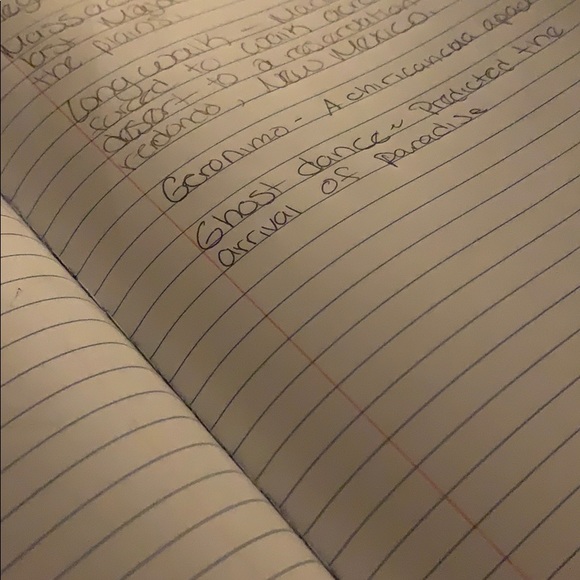 Massac
the plains
Long walk -
forced to walk acro
desert to a reservation
redondo, New Mexico.
Geronimo - A chiricanoua apac
Ghost dance ~ Predicted the
arrival of paradise